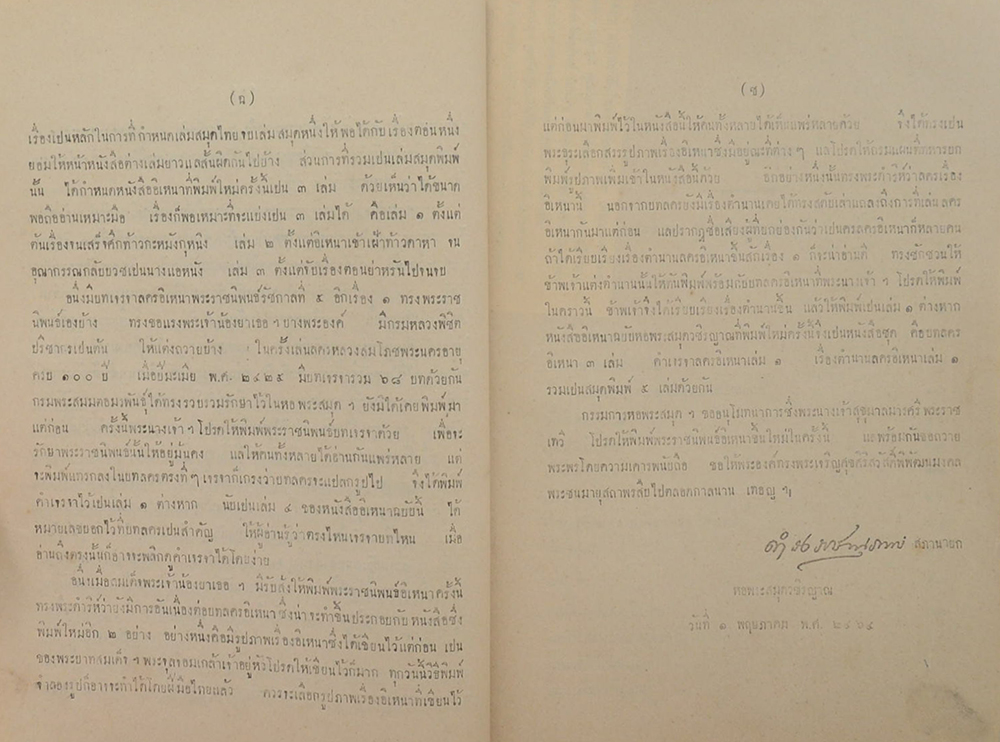 (ฉ)
เรื่องเปนหลักในการที่กำหนดเล่มสมุดไทย จบเล่มสมุดหนึ่งให้พอได้กับเรื่องตอนหนึ่ง
ย่อมให้หน้าหนังสือต่างเล่มยาวแลสั้นผิดกันไปบ้าง ส่วนการที่รวมเปนเล่มสมุดพิมพ์
นั้น ได้กำหนดหนังสืออิเหนาที่พิมพ์ใหม่ครั้งนี้เปน ๓ เล่ม ด้วยเห็นว่าได้ขนาด
พอถืออ่านเหมาะมือ เรื่องก็พอเหมาะที่จะแบ่งเปน ๓ เล่มได้ คือเล่ม ๑ ตั้งแต่
ต้นเรื่องจนเสร็จศึกท้าวกะหมังกุหนิง เล่ม ๒ ตั้งแต่อิเหนาเข้าเฝ้าท้าวดาหา จน
อุณากรรณกลับบวชเปนนางแอหนัง เล่ม ๓ ตั้งแต่จับเรื่องตอนย่าหรันไปจนจบ
อนึ่งมีบทเจรจาลครอิเหนาพระราชนิพนธ์รัชกาลที่ ๕ อีกเรื่อง ๑ ทรงพระราช
นิพนธ์เองบ้าง ทรงขอแรงพระเจ้าน้องยาเธอ ฯ บางพระองค์ มีกรมหลวงพิชิต
ปรีชากรเปนต้น ให้แต่งถวายบ้าง ในครั้งเล่นลครหลวงสมโภชพระนครอายุ
ครบ ๑๐๐ ปี เมื่อปีมะเมีย พ.ศ. ๒๔๒๕ มีบทเจรจารวม ๖๘ บทด้วยกัน
กรมพระสมมตอมรพันธุ์ได้ทรงรวบรวมรักษาไว้ในหอพระสมุด ฯ ยังมิได้เคยพิมพ์มา
แต่ก่อน ครั้งนี้พระนางเจ้า ฯ โปรดให้พิมพ์พระราชนิพนธ์บทเจรจาด้วย เพื่อจะ
รักษาพระราชนิพนธ์นั้นให้อยู่มั่นคง แลให้คนทั้งหลายได้อ่านกันแพร่หลาย แต่
จะพิมพ์แทรกลงในบทลครตรงที่ ๆ เจรจาก็เกรงว่าบทลครจะแปลกรูปไป จึงได้พิมพ์
คำเจรจาไว้เปนเล่ม ๑ ต่างหาก นับเปนเล่ม ๔ ของหนังสืออิเหนาฉบับนี้ ได้
หมายเลขบอกไว้ที่บทลครเปนสำคัญ ให้ผู้อ่านรู้ว่าตรงไหนเจรจาบทไหน เมื่อ
อ่านถึงตรงนั้นก็อาจจะพลิกดูคำเจรจาได้โดยง่าย
อนึ่งเมื่อสมเด็จพระเจ้าน้องยาเธอ ฯ มีรับสั่งให้พิมพ์พระราชนิพนธ์อิเหนาครั้งนี้
ทรงพระดำริห์ว่ายังมีการอันเนื่องต่อบทลครอิเหนาซึ่งน่าจะทำขึ้นประกอบกับหนังสือซึ่ง
พิมพ์ใหม่อีก ๒ อย่าง อย่างหนึ่งคือมีรูปภาพเรื่องอิเหนาซึ่งได้เขียนไว้แต่ก่อน เปน
ของพระบาทสมเด็จ ฯ พระจุลจอมเกล้าเจ้าอยู่หัวโปรดให้เขียนไว้ก็มาก ทุกวันนี้วิธีพิมพ์
จำลองรูปก็อาจจะทำได้โดยฝีมือไทยแล้ว ควรจะเลือกรูปภาพเรื่องอิเหนาที่เขียนไว้
(ช)
แต่ก่อนมาพิมพ์ไว้ในหนังสือนี้ให้คนทั้งหลายได้เห็นแพร่หลายด้วย จึงได้ทรงเปน
พระธุระเลือกสรรรูปภาพเรื่องอิเหนาซึ่งมีอยู่ณะที่ต่าง ๆ แลโปรดให้กรมแผนที่ทหารบก
พิมพ์รูปภาพเพิ่มเข้าในหนังสือนี้ด้วย อีกอย่างหนึ่งนั้นทรงพระดำริห์ว่าลครเรื่อง
อิเหนานี้ นอกจากบทลครยังมีเรื่องตำนานเคยได้ทรงสดับเล่าแถลงถึงการที่เล่นลคร
อิเหนากันมาแต่ก่อน แลปรากฏชื่อเสียงผู้ที่ยกย่องกันว่าเปนตัวลครอิเหนาก็หลายคน
ถ้าได้เรียบเรียงเรื่องตำนานลครอิเหนาขึ้นสักเรื่อง ๑ ก็จะน่าอ่านดี ทรงชักชวนให้
ข้าพเจ้าแต่งตำนานนั้นให้ทันพิมพ์พร้อมกับบทลครอิเหนาที่พระนางเจ้า ฯ โปรดให้พิมพ์
ในคราวนี้ ข้าพเจ้าจึงได้เรียบเรียงเรื่องตำนานขึ้น แล้วให้พิมพ์เปนเล่ม ๑ ต่างหาก
หนังสืออิเหนาฉบับหอพระสมุดวชิรญาณที่พิมพ์ใหม่ครั้งนี้จึงเปนหนังสือชุด คือบทลคร
อิเหนา ๓ เล่ม คำเจรจาลครอิเหนาเล่ม ๑ เรื่องตำนานลครอิเหนาเล่ม ๑
รวมเปนสมุดพิมพ์ ๕ เล่มด้วยกัน
กรรมการหอพระสมุด ฯ ขออนุโมทนาการซึ่งพระนางเจ้าสุขุมาลมารศรี พระราช
เทวี โปรดให้พิมพ์พระราชนิพนธ์อิเหนาขึ้นใหม่ในครั้งนี้ แลพร้อมกันขอถวาย
พระพรโดยความเคารพนับถือ ขอให้พระองค์ทรงพระเจริญสุขศิริสวัสดิ์พิพัฒนมงคล
พระชนมายุสถาพรสืบไปตลอดกาลนาน เทอญ ฯ
ดำรงราชานุภาพ สภานายก
หอพระสมุดวชิรญาณ
วันที่ ๑ พฤษภาคม พ.ศ. ๒๔๖๔